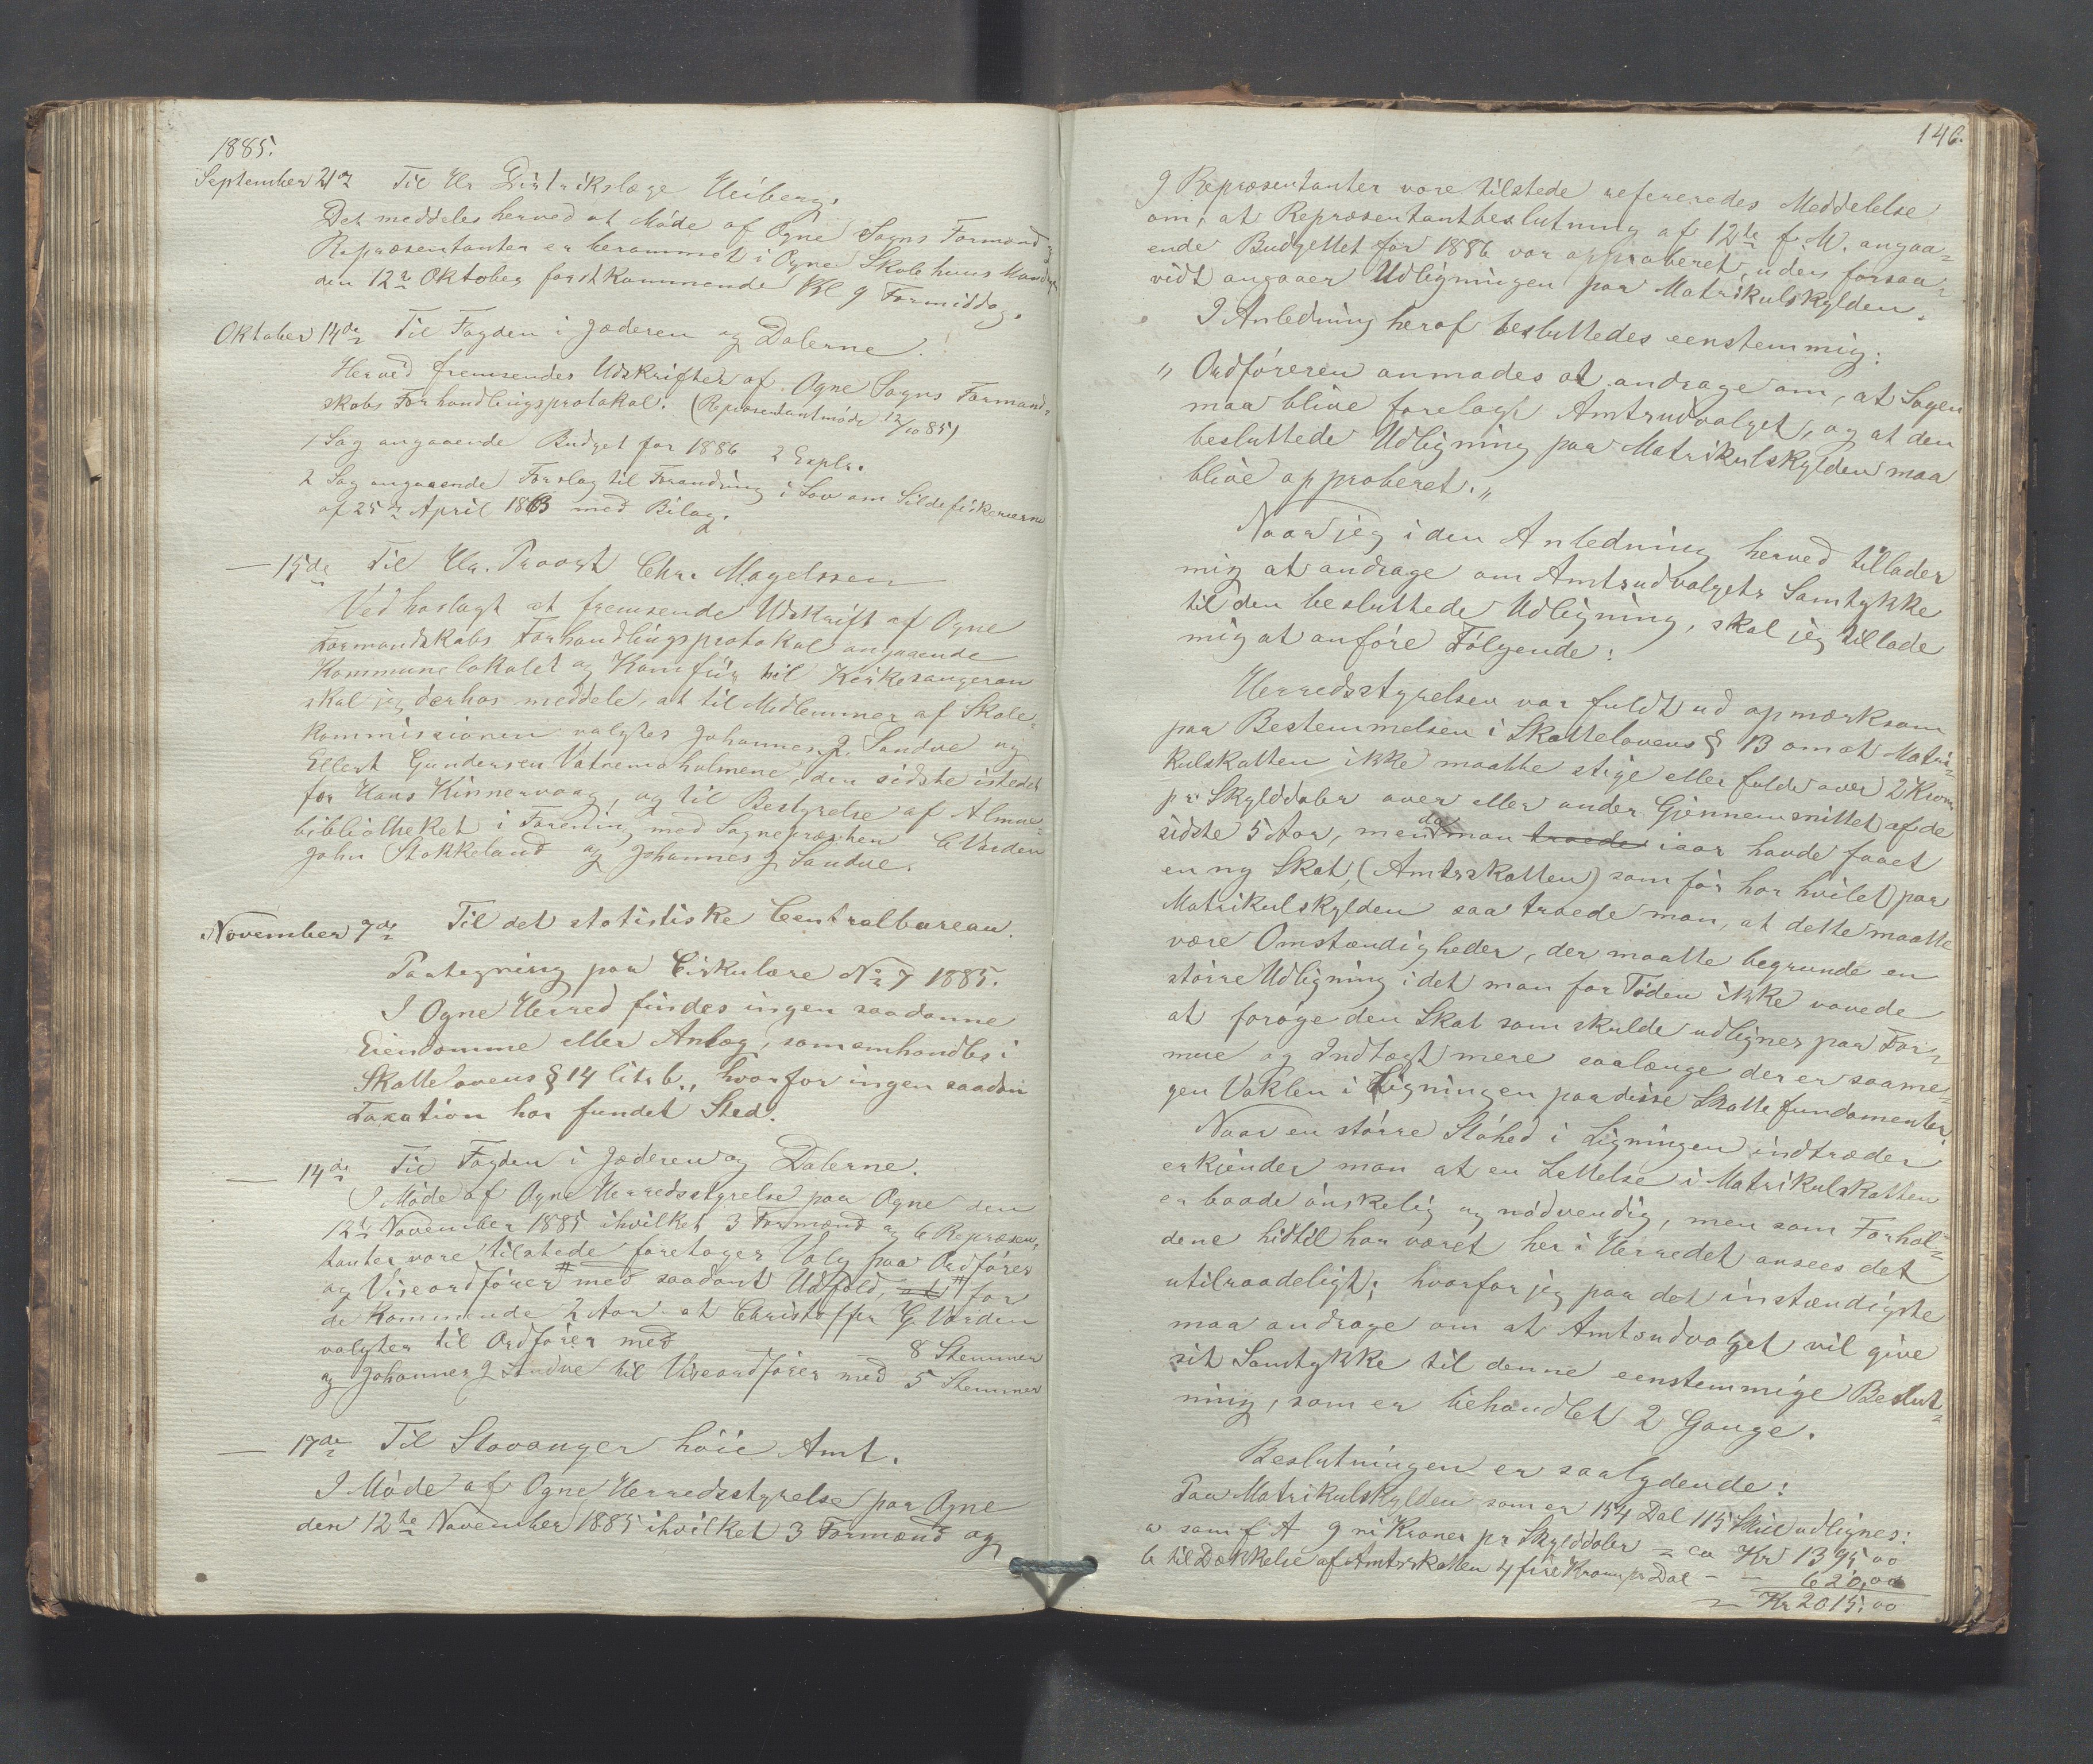 1885.
September 21de Til Hr Distriktslæge Heiberg.
Det meddeles herved at Møde af Ogne Sogns Formænd og
Repræsentanter er berammet i Ogne Skolehuus Mandag
den 12te Oktober førstkommende Kl 9 Formiddag.
Oktober 14de Til Fogden i Jæderen og Dalerne.
Herved fremsendes Udskrifter af Ogne Sogns Formand-
skabs Forhandlingsprotokol. (Repræsentantmøde 12/10 85)
1 Sag angaaende Budget for 1886 2 Explr.
2 Sag angaaende Forslag til Forandring i Lov om Sildefiskerierne
af 25de April 1863 med Bilag.
— 15de Til Hr. Provst Chr. Magelssen
Vedhoslagt at fremsende Udskrift af Ogne
Formandskabs Forhandlingsprotokol angaaende
Kommunelokalet og Komfür til Kirkesangeren
skal jeg derhos meddele, at til Medlemmer af Skole-
kommissionen valgtes Johannes J. Sandve og
Ellert Gundersen Vatnemoholmene, den sidste istedet
for Hans Kinnervaag, og til Bestyrelse af Almue-
bibliotheket i Forening med Sognepræsten C Varden
John Stokkeland og Johannes J. Sandve.
November 7de Til det statistiske Centralbureau.
Paategning paa Cirkulære No 7 1885.
I Ogne Herred findes ingen saadanne
Eiendomme eller Anlæg, som omhandles i
Skattelovens § 14 litr b., hvorfor ingen saadan
Taxation har fundet Sted.
— 14de Til Fogden i Jæderen og Dalerne.
I Møde af Ogne Herredsstyrelse paa Ogne den
12te November 1885 ihvilket 3 Formænd og 6 Repræsen-
tanter vare tilstede foretoges Valg paa Ordfører
og Viseordfører # med saadant Udfald, at # for
de kommende 2 Aar at Christoffer G Varden
valgtes til Ordfører med 8 Stemmer
og Johannes J Sandve til Viseordfører med 5 Stemmer
— 17de Til Stavanger høie Amt.
I Møde af Ogne Herredsstyrelse paa Ogne
den 12te November 1885 ihvilket 3 Formænd og
146.
9 Repræsentanter vare tilstede refereredes Meddelelse
om, at Repræsentantbeslutning af 12te f. M. angaa-
ende Budgettet for 1886 var approberet, uden forsaa-
vidt angaaer Udligningen paa Matrikulskylden.
I Anledning heraf besluttedes eenstemmig:
„ Ordføreren anmodes at andrage om, at Sagen
maa blive forelagt Amtsudvalget, og at den
besluttede Udligning paa Matrikulskylden maa
blive approberet. „
Naar jeg i den Anledning herved tillader
mig at andrage om Amtsudvalgets Samtykke
til den besluttede Udligning, skal jeg tillade
mig at anføre Følgende:
Herredsstyrelsen var fuldt ud opmærksom
paa Bestemmelsen i Skattelovens § 13 om at Matri-
kulskatten ikke maatte stige eller falde over 2 Kroner
pr Skylddaler over eller under Gjennemsnittet af de
sidste 5 Aar, men da man troede iaar havde faaet
en ny Skat, (Amtsskatten) som før har hvilet paa
Matrikulskylden saa troede man, at dette maatte
være Omstændigheder, der maatte begrunde en
større Udligning idet man for Tiden ikke vovede
at forøge den Skat som skulde udlignes paa For-
mue og Indtægt mere saalænge der er saa me-
gen Vaklen i Ligningen paa disse Skattefundamenter.
Naar en større Støhed i Ligningen indtræder
erkjender man at en Lettelse i Matrikulskatten
er baade ønskelig og nødvendig, men som Forhol-
dene hidtil har været her i Herredet ansees det
utilraadeligt; hvorfor jeg paa det instændigste
maa andrage om at Amtsudvalget vil give
sit Samtykke til denne eenstemmige Beslut-
ning, som er behandlet 2 Gange.
Beslutningen er saalydende:
Paa Matrikulskylden som er 154 Dal 115 Skil udlignes:
a som f A 9 ni Kroner pr Skylddaler = ca Kr 1395,00
b til Dækkelse af Amtsskatten 4 fire Kroner pr Dal - — 620,00
= Kr 2015,00